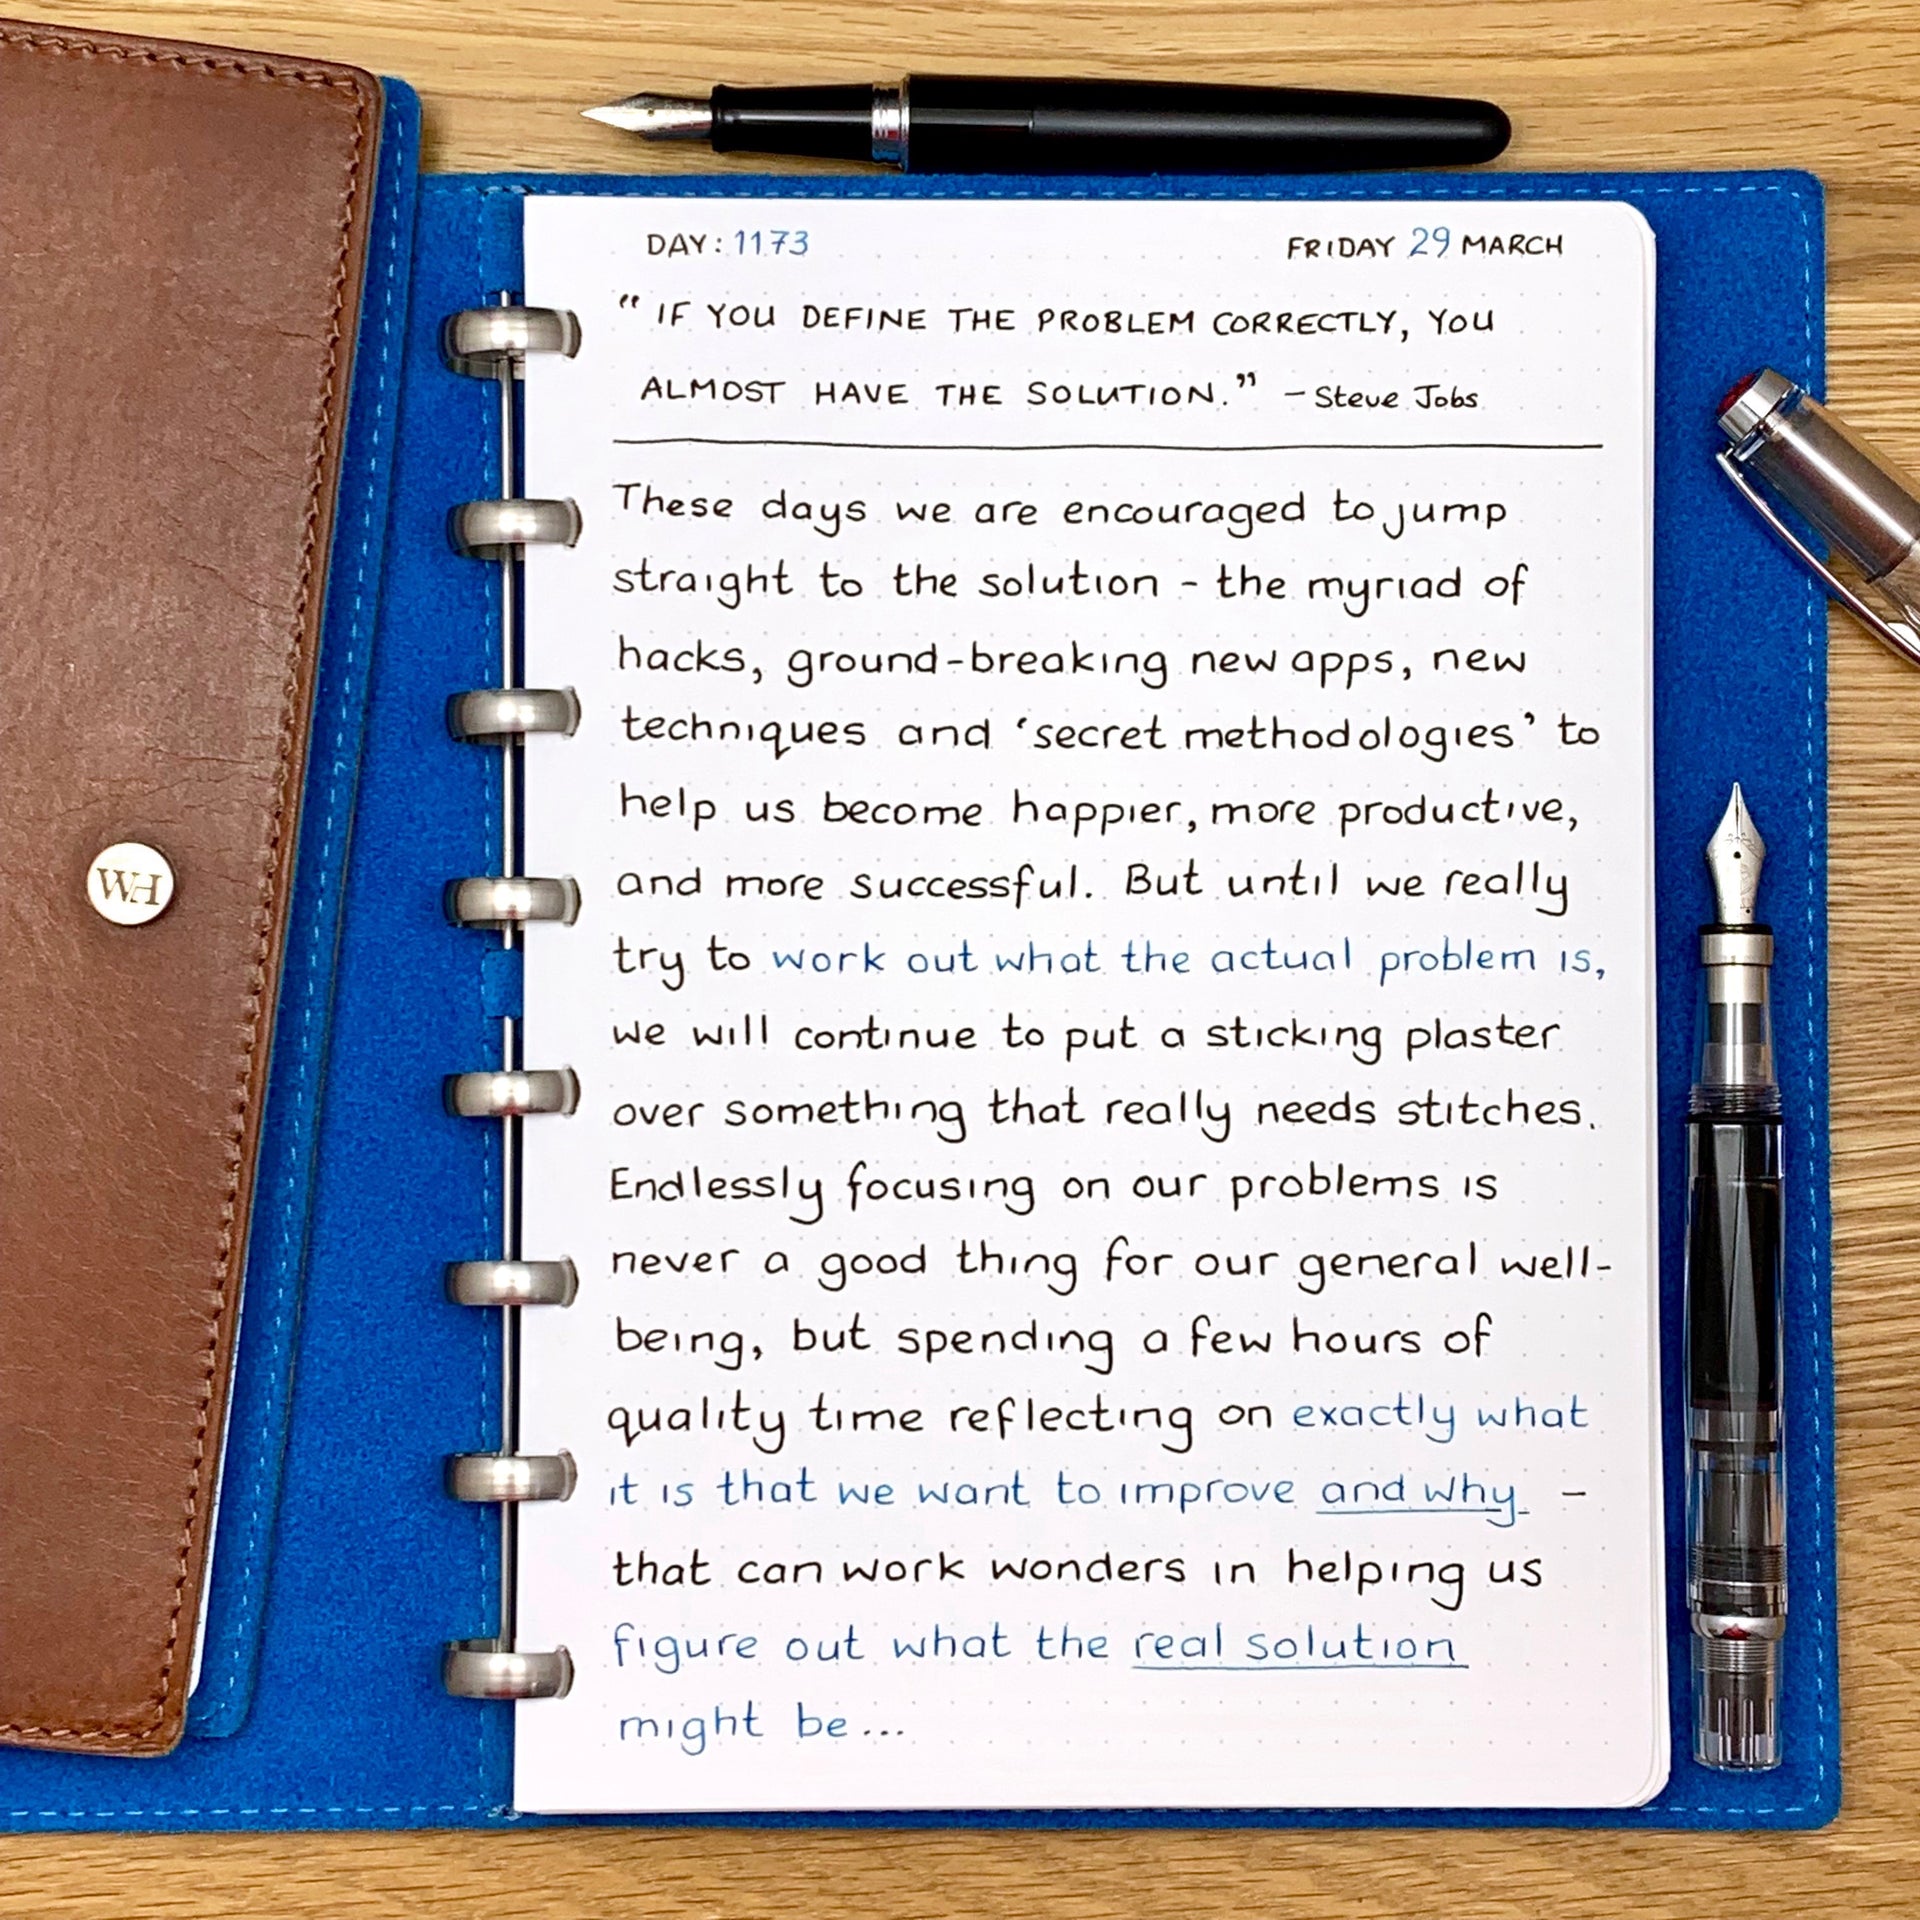 DAY: 1173 FRIDAY 29 MARCH
“ IF YOU DEFINE THE PROBLEM CORRECTLY, YOU
ALMOST HAVE THE SOLUTION.” – Steve Jobs
These days we are encouraged to jump
straight to the solution - the myriad of
hacks, ground-breaking new apps, new
techniques and ‘secret methodologies’ to
help us become happier, more productive,
and more successful. But until we really
try to work out what the actual problem is,
we will continue to put a sticking plaster
over something that really needs stitches.
Endlessly focusing on our problems is
never a good thing for our general well-
being, but spending a few hours of
quality time reflecting on exactly what
it is that we want to improve and why –
that can work wonders in helping us
figure out what the real solution
might be...
WH